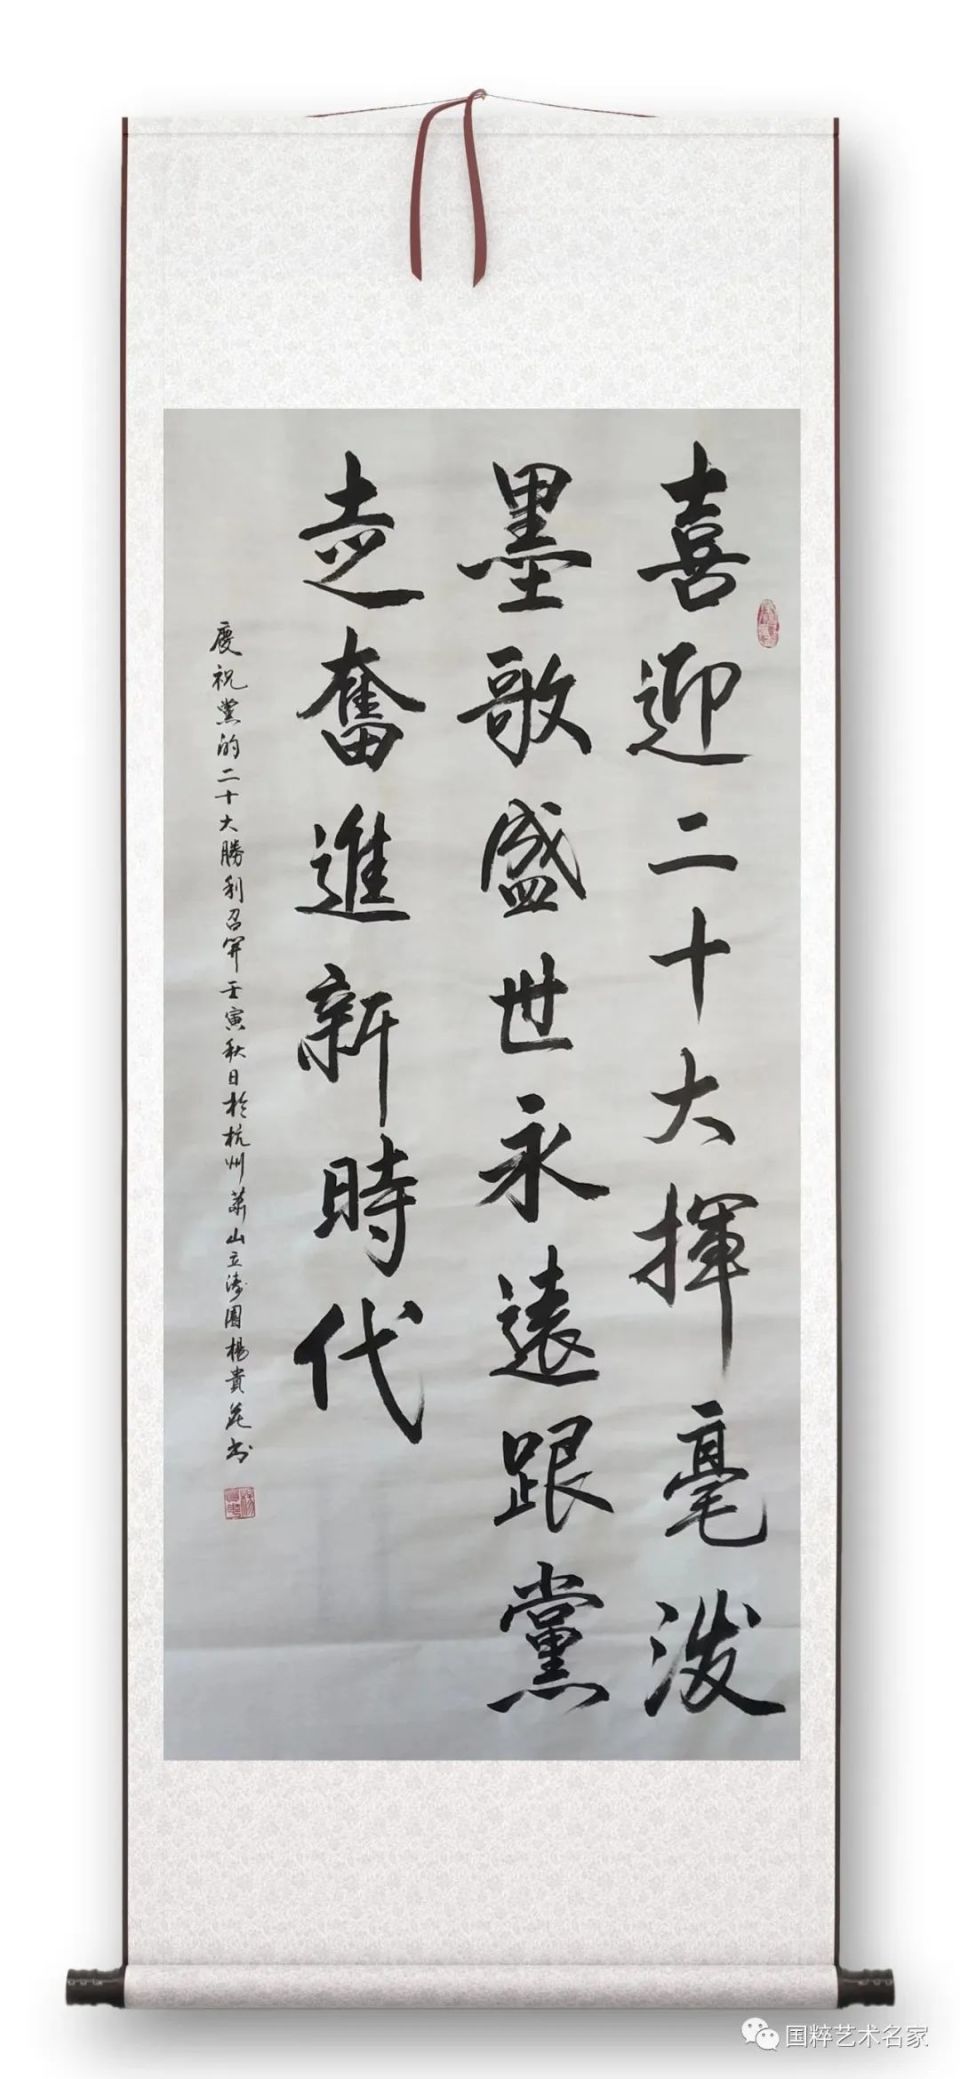 喜迎二十大揮毫潑
墨歌盛世永遠跟黨
走奮進新時代
慶祝黨的二十大勝利召開壬寅秋日於杭州蕭山立濤園楊貴花書
国粹艺术名家